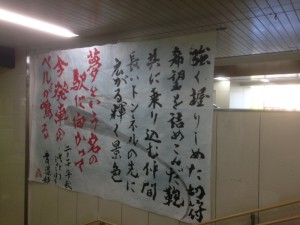 強く握りしめた切符
希望を詰めこんだ鞄
共に乗り込む仲間
長いトンネルの先に
広がる輝く景色
夢という名の
駅に向かって
今発車の
ベルが鳴る